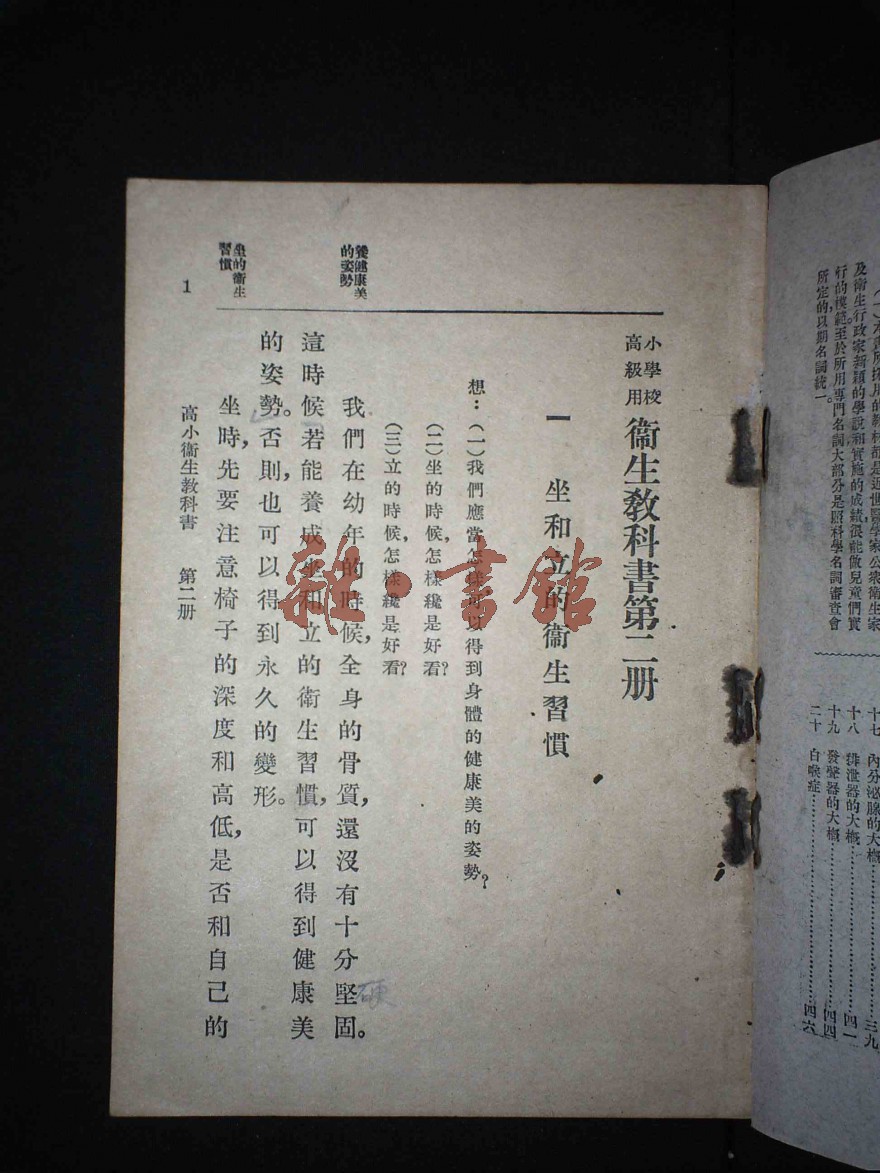 小學校
高級用
衞生教科書第二册
一 坐和立的衞生習慣
想：（一）我們應當怎樣，可以得到身體的健康美的姿勢？
（二）坐的時候，怎樣纔是好看？
（三）立的時候，怎樣纔是好看？
我們在幼年的時候，全身的骨質，還沒有十分堅固。
硬
這時候，若能養成坐和立的衞生習慣，可以得到健康美
的姿勢。否則，也可以得到永久的變形。
坐時，先要注意椅子的深度和高低，是否和自己的
養健康美
的姿勢
坐的衞生
習慣
高小衞生教科書 第二册
1
雜·書館
及衞生行政家新穎的學說和實施的成績，很能做兒童們實
行的模範。至於所用專門名詞，大部分是照科學名詞審查會
所定的，以期名詞統一。
十七 內分泌腺的大概……三九
十八 排泄器的大概……四一
十九 發聲器的大概……四四
二十 白喉症……四六